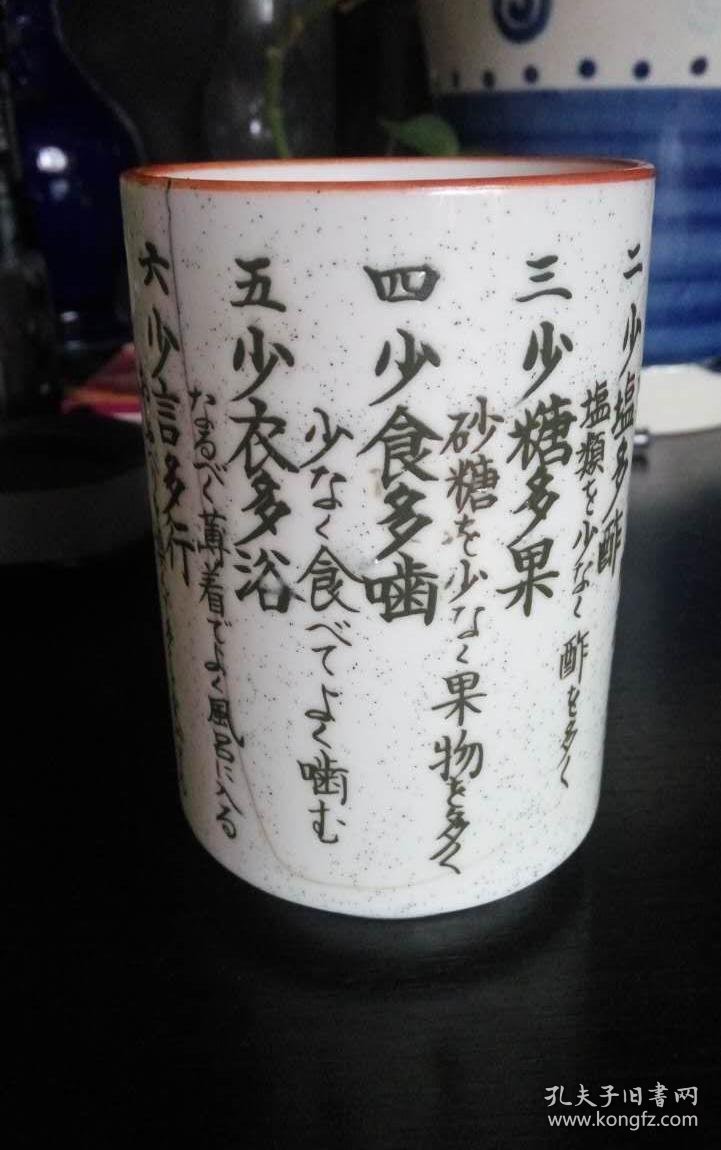 二少塩多酢
塩類を少なく酢を多く
三少糖多果
砂糖を少なく果物を多く
四少食多噛
少なく食べてよく噛む
五少衣多浴
なるべく薄着でよく風呂に入る
六少言多行
孔夫子旧书网
www.kongfz.com